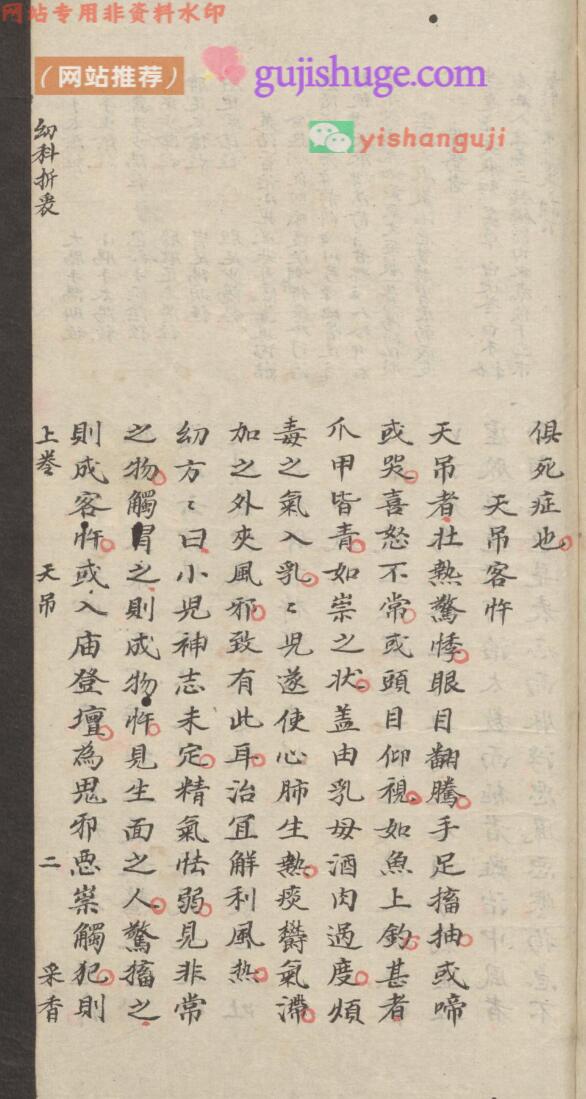 网站专用非资料水印
(网站推荐) gujishuge.com
yishanguji
俱死症也
天吊客忤
天吊者壮熱驚悸眼目翻騰手足搐抽或啼
或哭喜怒不常或頭目仰視如魚上釣甚者
爪甲皆青如祟之状盖由乳母酒肉過度煩
毒之氣入乳〻児遂使心肺生熱痰欝氣滞
加之外夾風邪致有此耳治宜解利風熱
幼方〻曰小児神志未定精氣怯弱見非常
之物觸冒之則成物忤見生面之人驚搐之
則成客忤或入庙登壇為鬼邪悪祟觸犯則
幼科折衷
上巻
天吊
二
采香